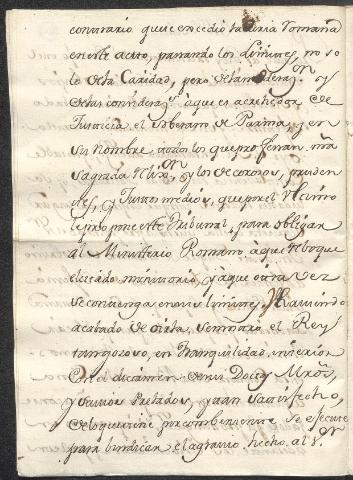 contrario que excedio la Curia Romana
en este acto, pasando los Limites, no so
lo dela Caridad, pero dela moderaz.on y
dela considerac.on à que es acrehedor de
Justicia el Soberano de Parma, y en
su Nombre todos los que profesan ntra
Sagrada Relig.on, y los decorosos, pruden
tes, y Justos medios, que
propone este Tribunal, para obligar
al Ministerio Romano à que revoque
el citado monitorio, y à que otra vez
se contenga en sus limites. Y haviendo
acabado de oirla, se mostrò el Rey
tan gozoso, en tranquilidad interior
con el dictamen de sus Doctos Mros,
y savios Prelados, y tan satisfecho,
de lo que
para vindicar el agravio hecho al S.or